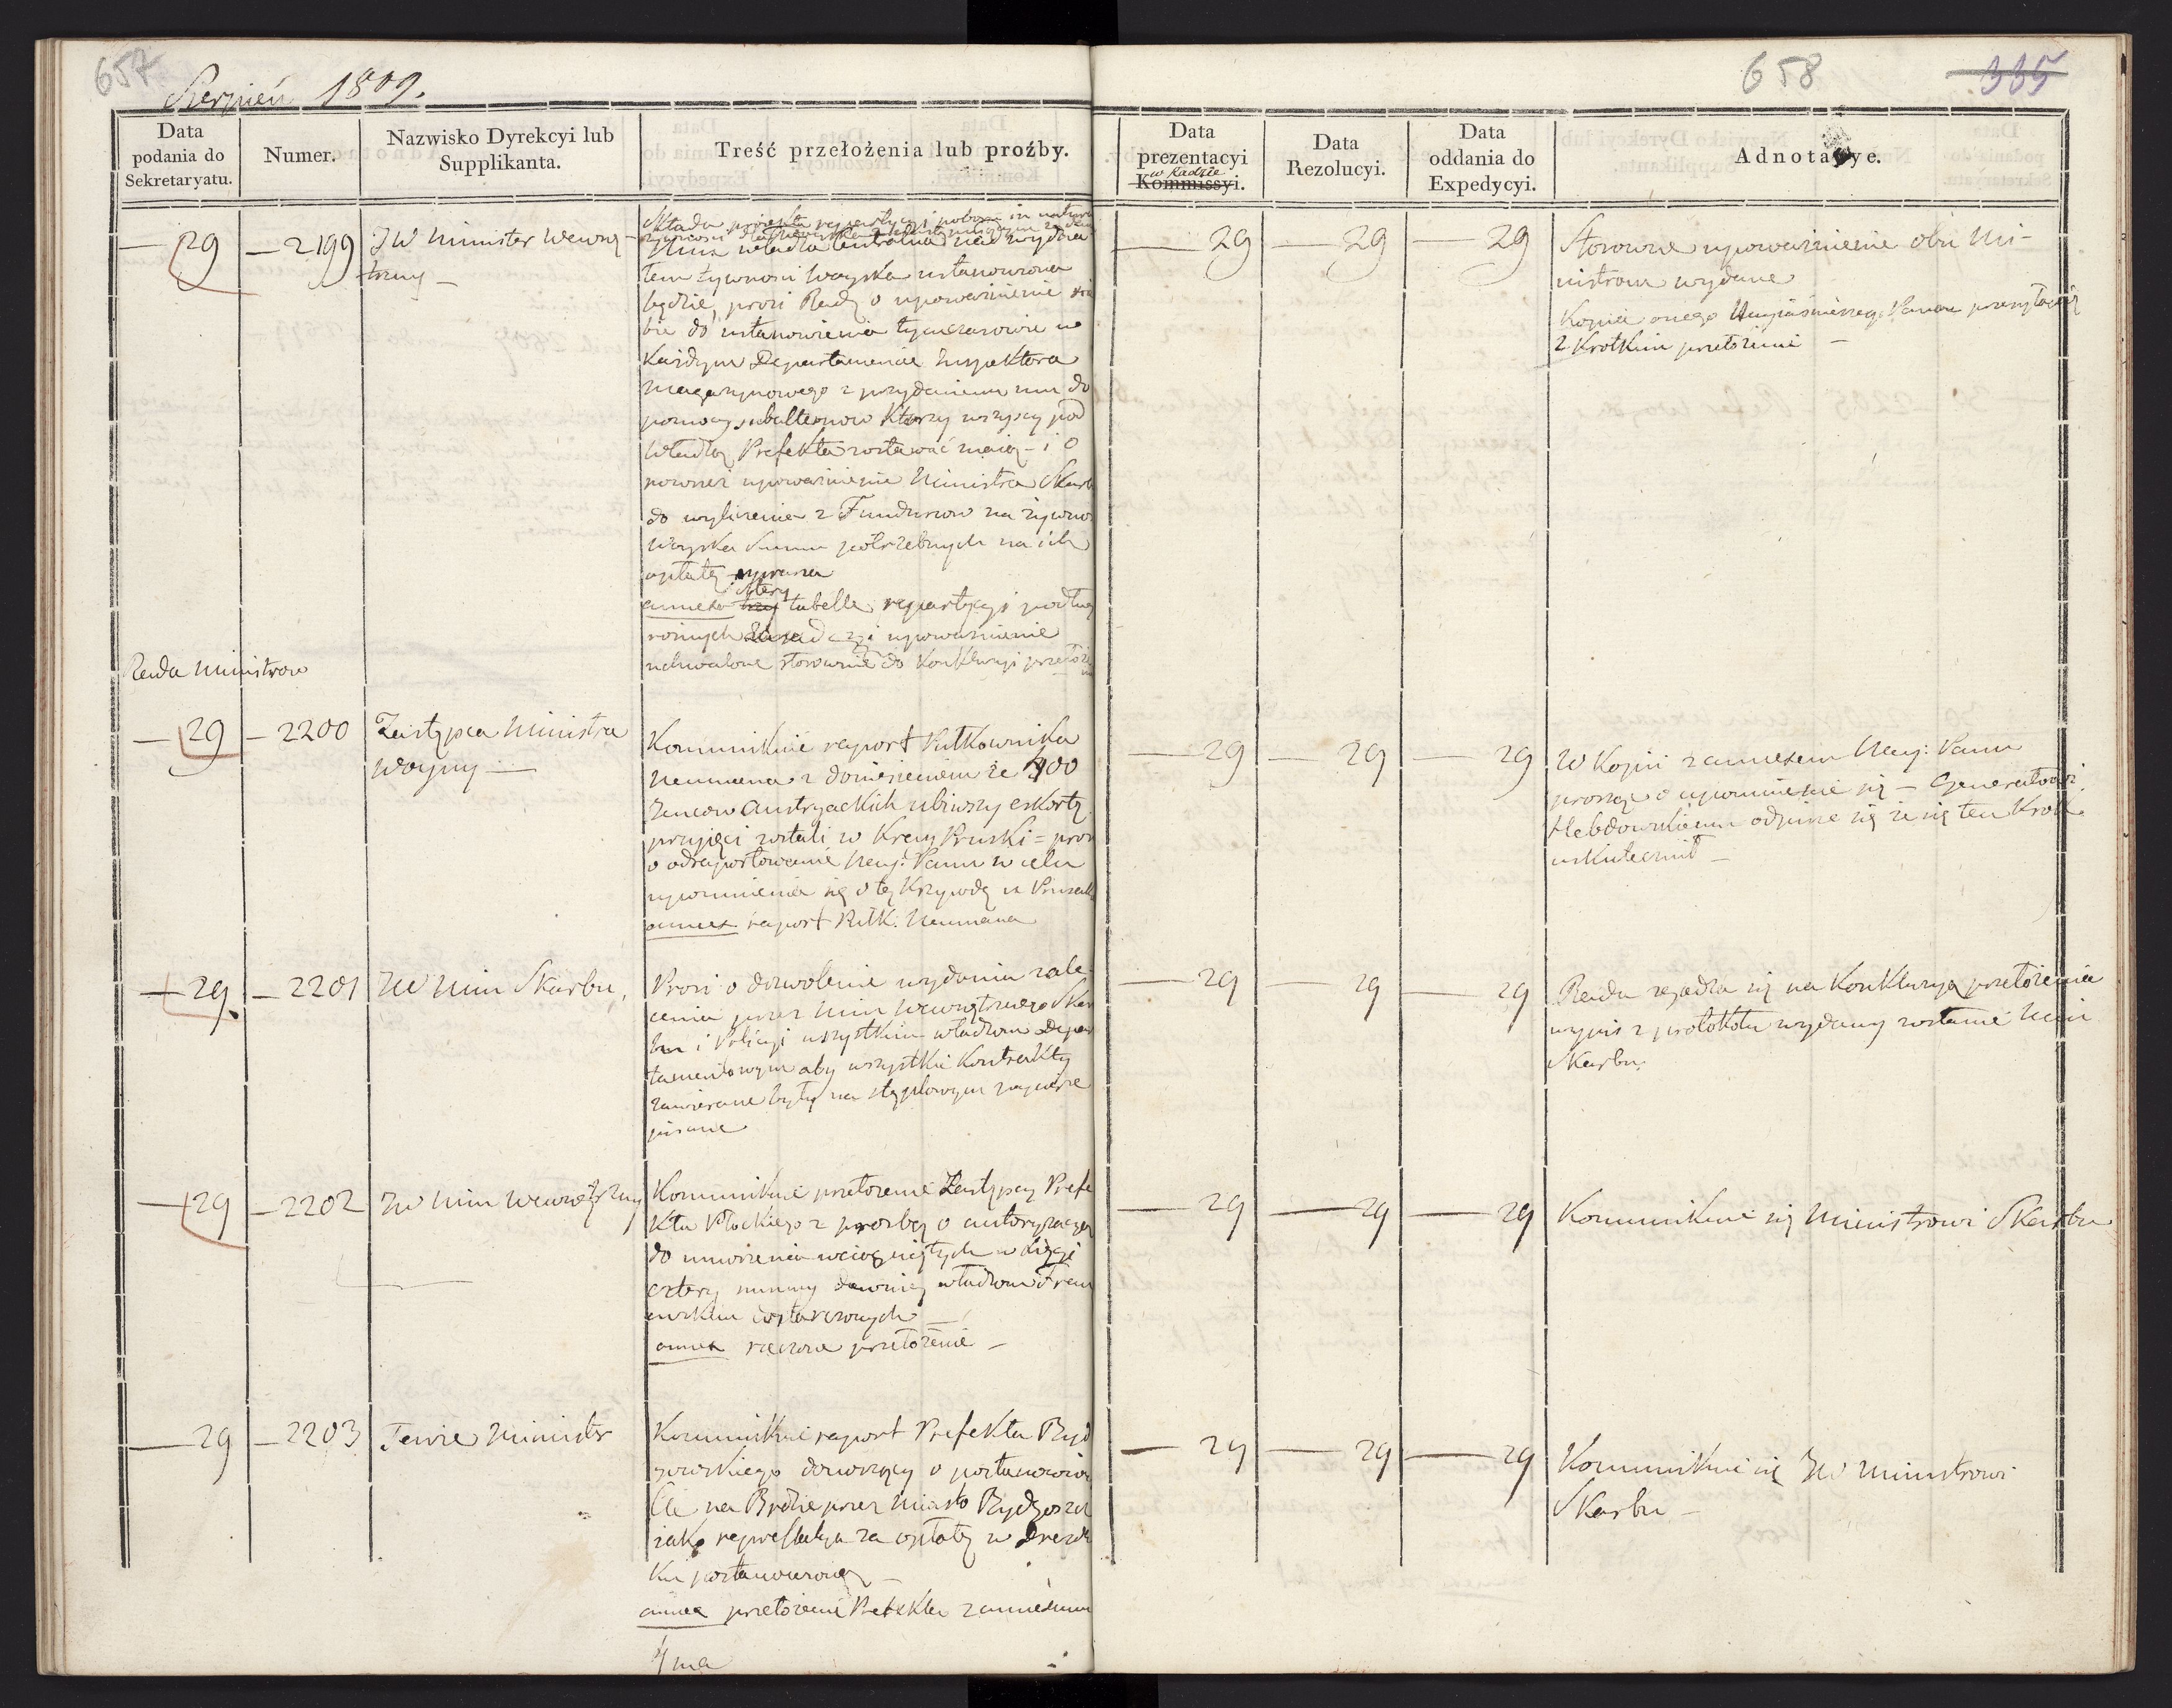 657
Sierpień 1809.
658
335
Data podania do Sekretaryatu.
Numer.
Nazwisko Dyrekcyi lub Supplikanta.
Treść przełożenia lub proźby.
Data prezentacyi w Radzie Kommissyi.
Data Rezolucyi.
Data oddania do Expedycyi.
Adnotacye.
— 29 — 2199 JW Minister Wewnę-
trzny —
Składa projekta repartycyi poboru in natura
żywności dla Woyska
władza Centralna nad wydzia
łem żywności Woyska ustanowiona
będzie, prosi Radę o upoważnienie sie
bie do ustanowienia tymczasowie w
każdym Departamencie Inspektora
Magazynowego z przydaniem mu do
pomocy subalternow ktorzy wszyscy pod
władzą Prefekta zostawać maią — i o
rownież upoważnienie Ministra Skarb
do wyliczenia z Funduszow na żywnoś
Woyska Summ potrzebnych na ich
opłatę
annexa trzy cztery tabelle repartycyi podług
rożnych zasad i upoważnienie
uchwalone stosownie do konkluzyi przełoże
— 29 — 29 — 29
Stosowne upoważnienie obu Mi-
nistrom wydane
Kopia onego Nayiaśnieyszego Pana przesyłać się
z krotkim przełożeniem —
Rada Ministrow
— 29 — 2200 Zastępca Ministra
Woyny —
Kommunikuie raport Pułkownika
Neumana z doniesieniem że 400
Jencow Austryackich ubiwszy eskortę
przyięci zostali w Kray Pruski = prosi
o odraportowanie Nay: Panu w celu
upomnienia się o tę krzywdę u Prusak
annex raport Pułk. Neumana
— 29 — 29 — 29
W Kopii z annexem Nay: Panu
prosząc o upomnienie się — Generałowi
Hebdowskiemu odpisze się że się ten krok
uskutecznił —
— 29 — 2201 JW Min Skarbu,
Prosi o dozwolenie wydania zale-
cenia przez Min Wewnętrznego Skar
bu i Policyi wszystkim władzom Depar
tamentowym aby wszystkie kontrakty
zawierane były na stęplowym papierze
pisane
— 29 — 29 — 29
Rada zgadza się na konkluzyą przełożenia
wypis z protokołu wydany zostanie Min
Skarbu.
— 29 — 2202 JW Min Wewnętrzny
Kommunikuie przełożenie Zastępcy Prefe
kta Płockiego z prozbą o autoryzacyą
do umorzenia wciągniętych w
cztery summy dawniey władzom Fran
cuskim dostarczonych —
annex rzeczone przełożenie —
— 29 — 29 — 29
Kommunikuie się Ministrowi Skarbu
— 29 — 2203 Tenże Minister
Kommunikuie raport Prefekta Byd
goskiego donoszący o postanowion
Cle na Brdzie przez Miasto Bydgoszcz
iako represalya za opłatę w Drezde
ku postanowioną —
annex przełożenie Prefekta z annexem
4ma
— 29 — 29 — 29
Kommunikuie się JW Ministrowi
Skarbu —